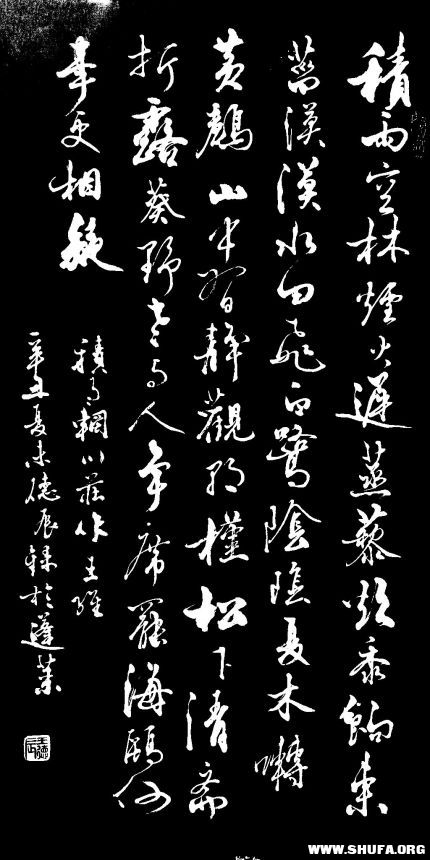 積雨空林煙火遲蒸藜炊黍餉東
菑漠漠水田飛白鷺陰陰夏木囀
黃鸝山中習靜觀朝槿松下清齋
折露葵野老與人爭席罷海鷗何
事更相疑
積雨輞川莊作王維
辛丑夏末德辰錄於蓬萊
WWW.SHUFA.ORG